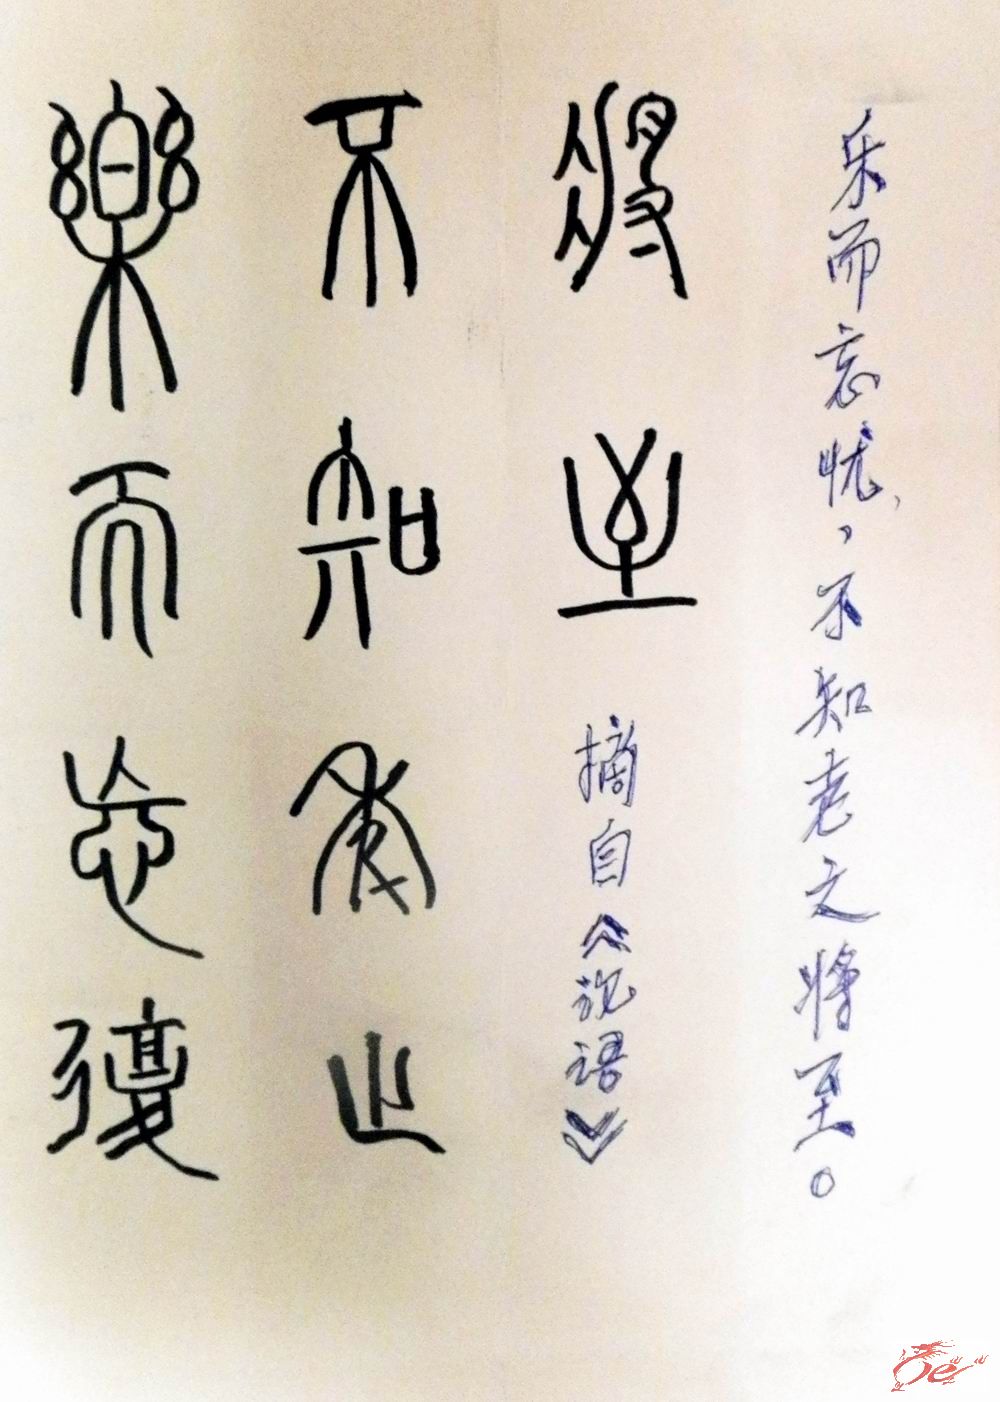 樂而忘憂
不知老之
將至 摘自《论语》
乐而忘忧，不知老之将至。